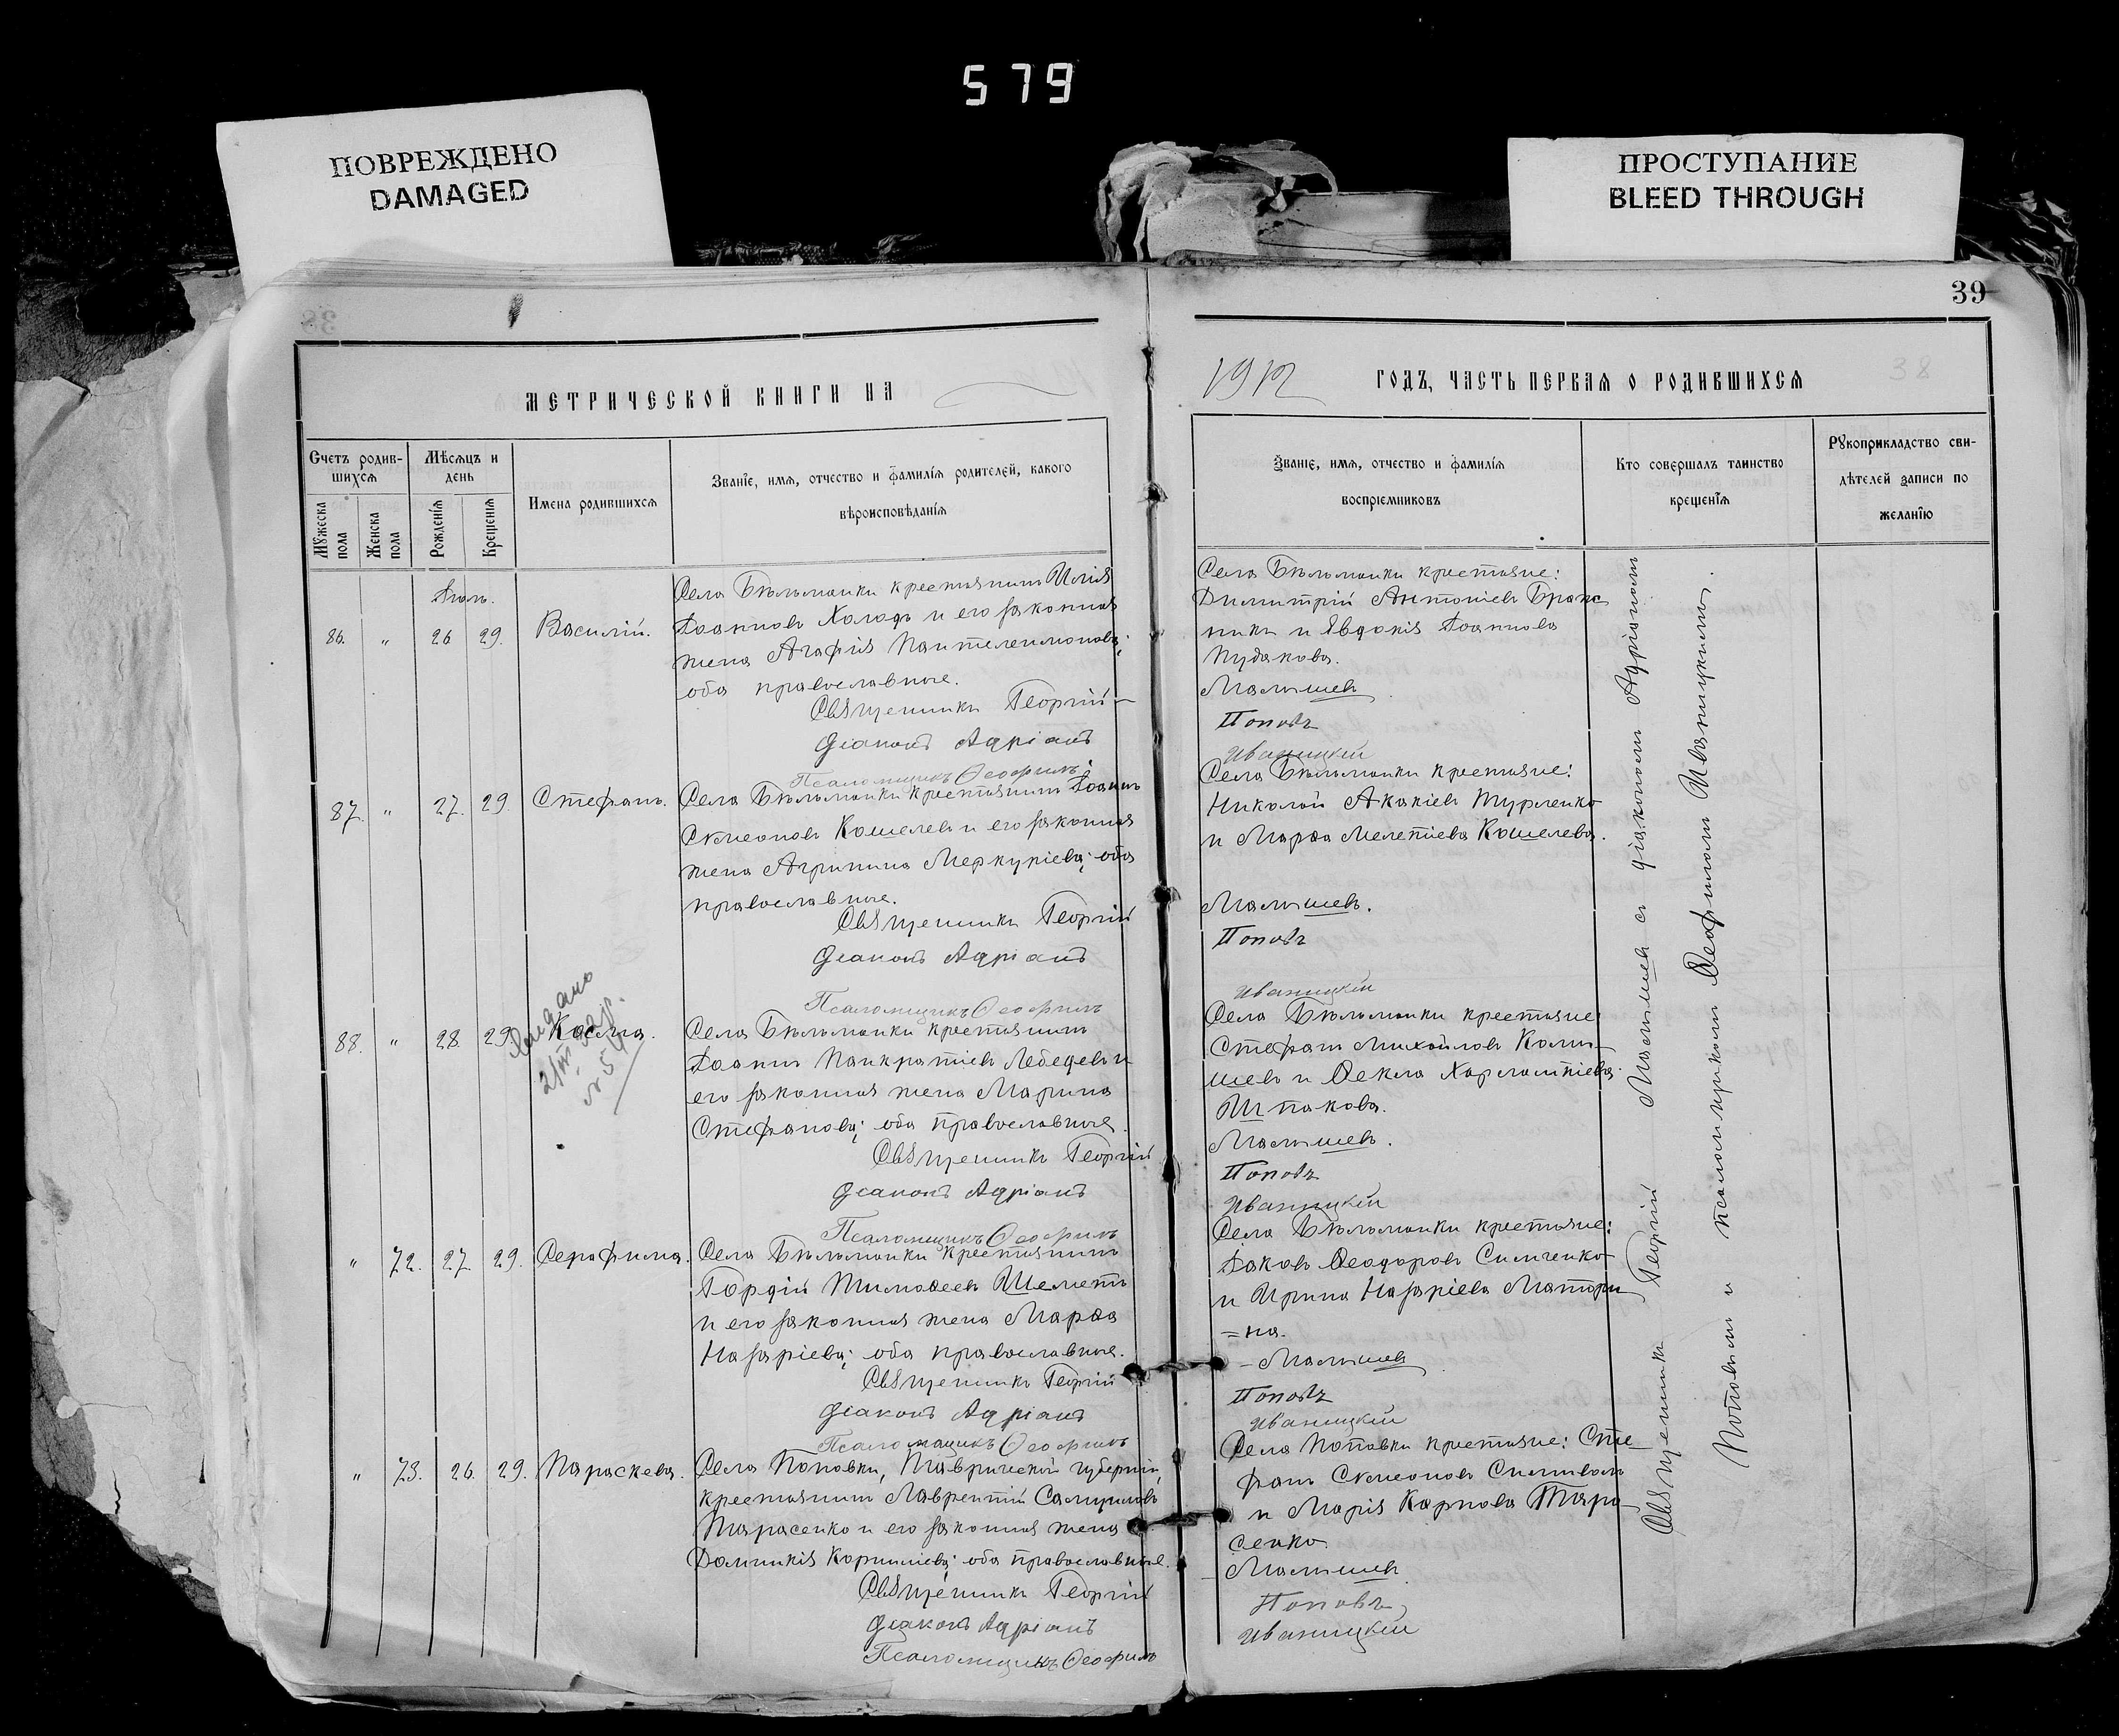 579
ПОВРЕЖДЕНО
DAMAGED
ПРОСТУПАНИЕ
BLEED THROUGH
39
38
МЕТРИЧЕСКОЙ КНИГИ НА
1912 ГОДЪ, ЧАСТЬ ПЕРВАЯ О РОДИВШИХСЯ
Счетъ родив-
шихся
Мужеска пола
Женска пола
Мѣсяцъ и
день
Рожденія
Крещенія
Имена родившихся
Званіе, имя, отчество и фамилія родителей, какого
вѣроисповѣданія
Званіе, имя, отчество и фамилія
воспріемниковъ
Кто совершалъ таинство
крещенія
Рукоприкладство сви-
дѣтелей записи по
желанію
86. " 26 29. Василій.
Села Бѣльманки крестьянинъ Илія
Іоанновъ Холодъ и его законная
жена Агафія Пантелеимонова;
оба православные.
Священникъ Георгій
Діаконъ Адріанъ
Псаломщикъ Ѳеофилъ
Села Бѣльманки крестьяне:
Димитрій Антоніевъ
и Евдокія Іоаннова
Пудакова.
Малышевъ
Поповъ
Иваницкій
87. " 27. 29. Стефанъ.
Села Бѣльманки крестьянинъ Іоаннъ
Симеоновъ Кошелевъ и его законная
жена Агрипина Меркуріева; оба
православные.
Священникъ Георгій
Діаконъ Адріанъ
Псаломщикъ Ѳеофилъ
Села Бѣльманки крестьяне:
Николай Акакіевъ Турленко
и Марѳа Мелетіева Кошелева.
Малышевъ.
Поповъ
Иваницкій
88. " 28. 29. Косма.
Села Бѣльманки крестьянинъ
Іоаннъ Панкратіевъ Лебедевъ и
его законная жена Марина
Стефанова; оба православные.
Священникъ Георгій
Діаконъ Адріанъ
Псаломщикъ Ѳеофилъ
Села Бѣльманки крестьяне:
Стефанъ Михайловъ
и Ѳекла Харлампіева
Шпакова.
Малышевъ.
Поповъ
Иваницкій
" 72. 27. 29. Серафима.
Села Бѣльманки крестьянинъ
Гордій Тимоѳеевъ Шеметъ
и его законная жена Марѳа
Назаріева; оба православные.
Священникъ Георгій
Діаконъ Адріанъ
Псаломщикъ Ѳеофилъ
Села Бѣльманки крестьяне:
Іаковъ Ѳеодоровъ Симченко
и Ирина Назаріева Матори
=на.
Малышевъ
Поповъ
Иваницкій
" 73. 26. 29. Параскева.
Села Поповки, Таврической губерніи,
крестьянинъ Лаврентій Самуиловъ
Тарасенко и его законная жена
Домникія Корниліева; оба православные.
Священникъ Георгій
Діаконъ Адріанъ
Псаломщикъ Ѳеофилъ
Села Поповки крестьяне: Сте
фанъ Симеоновъ
и Марія Карпова Тара
сенко.
Малышевъ
Поповъ
Иваницкій
Священникъ Георгій Малышевъ съ діакономъ Адріаномъ
Поповымъ и псаломщикомъ Ѳеофиломъ Иваницкимъ.